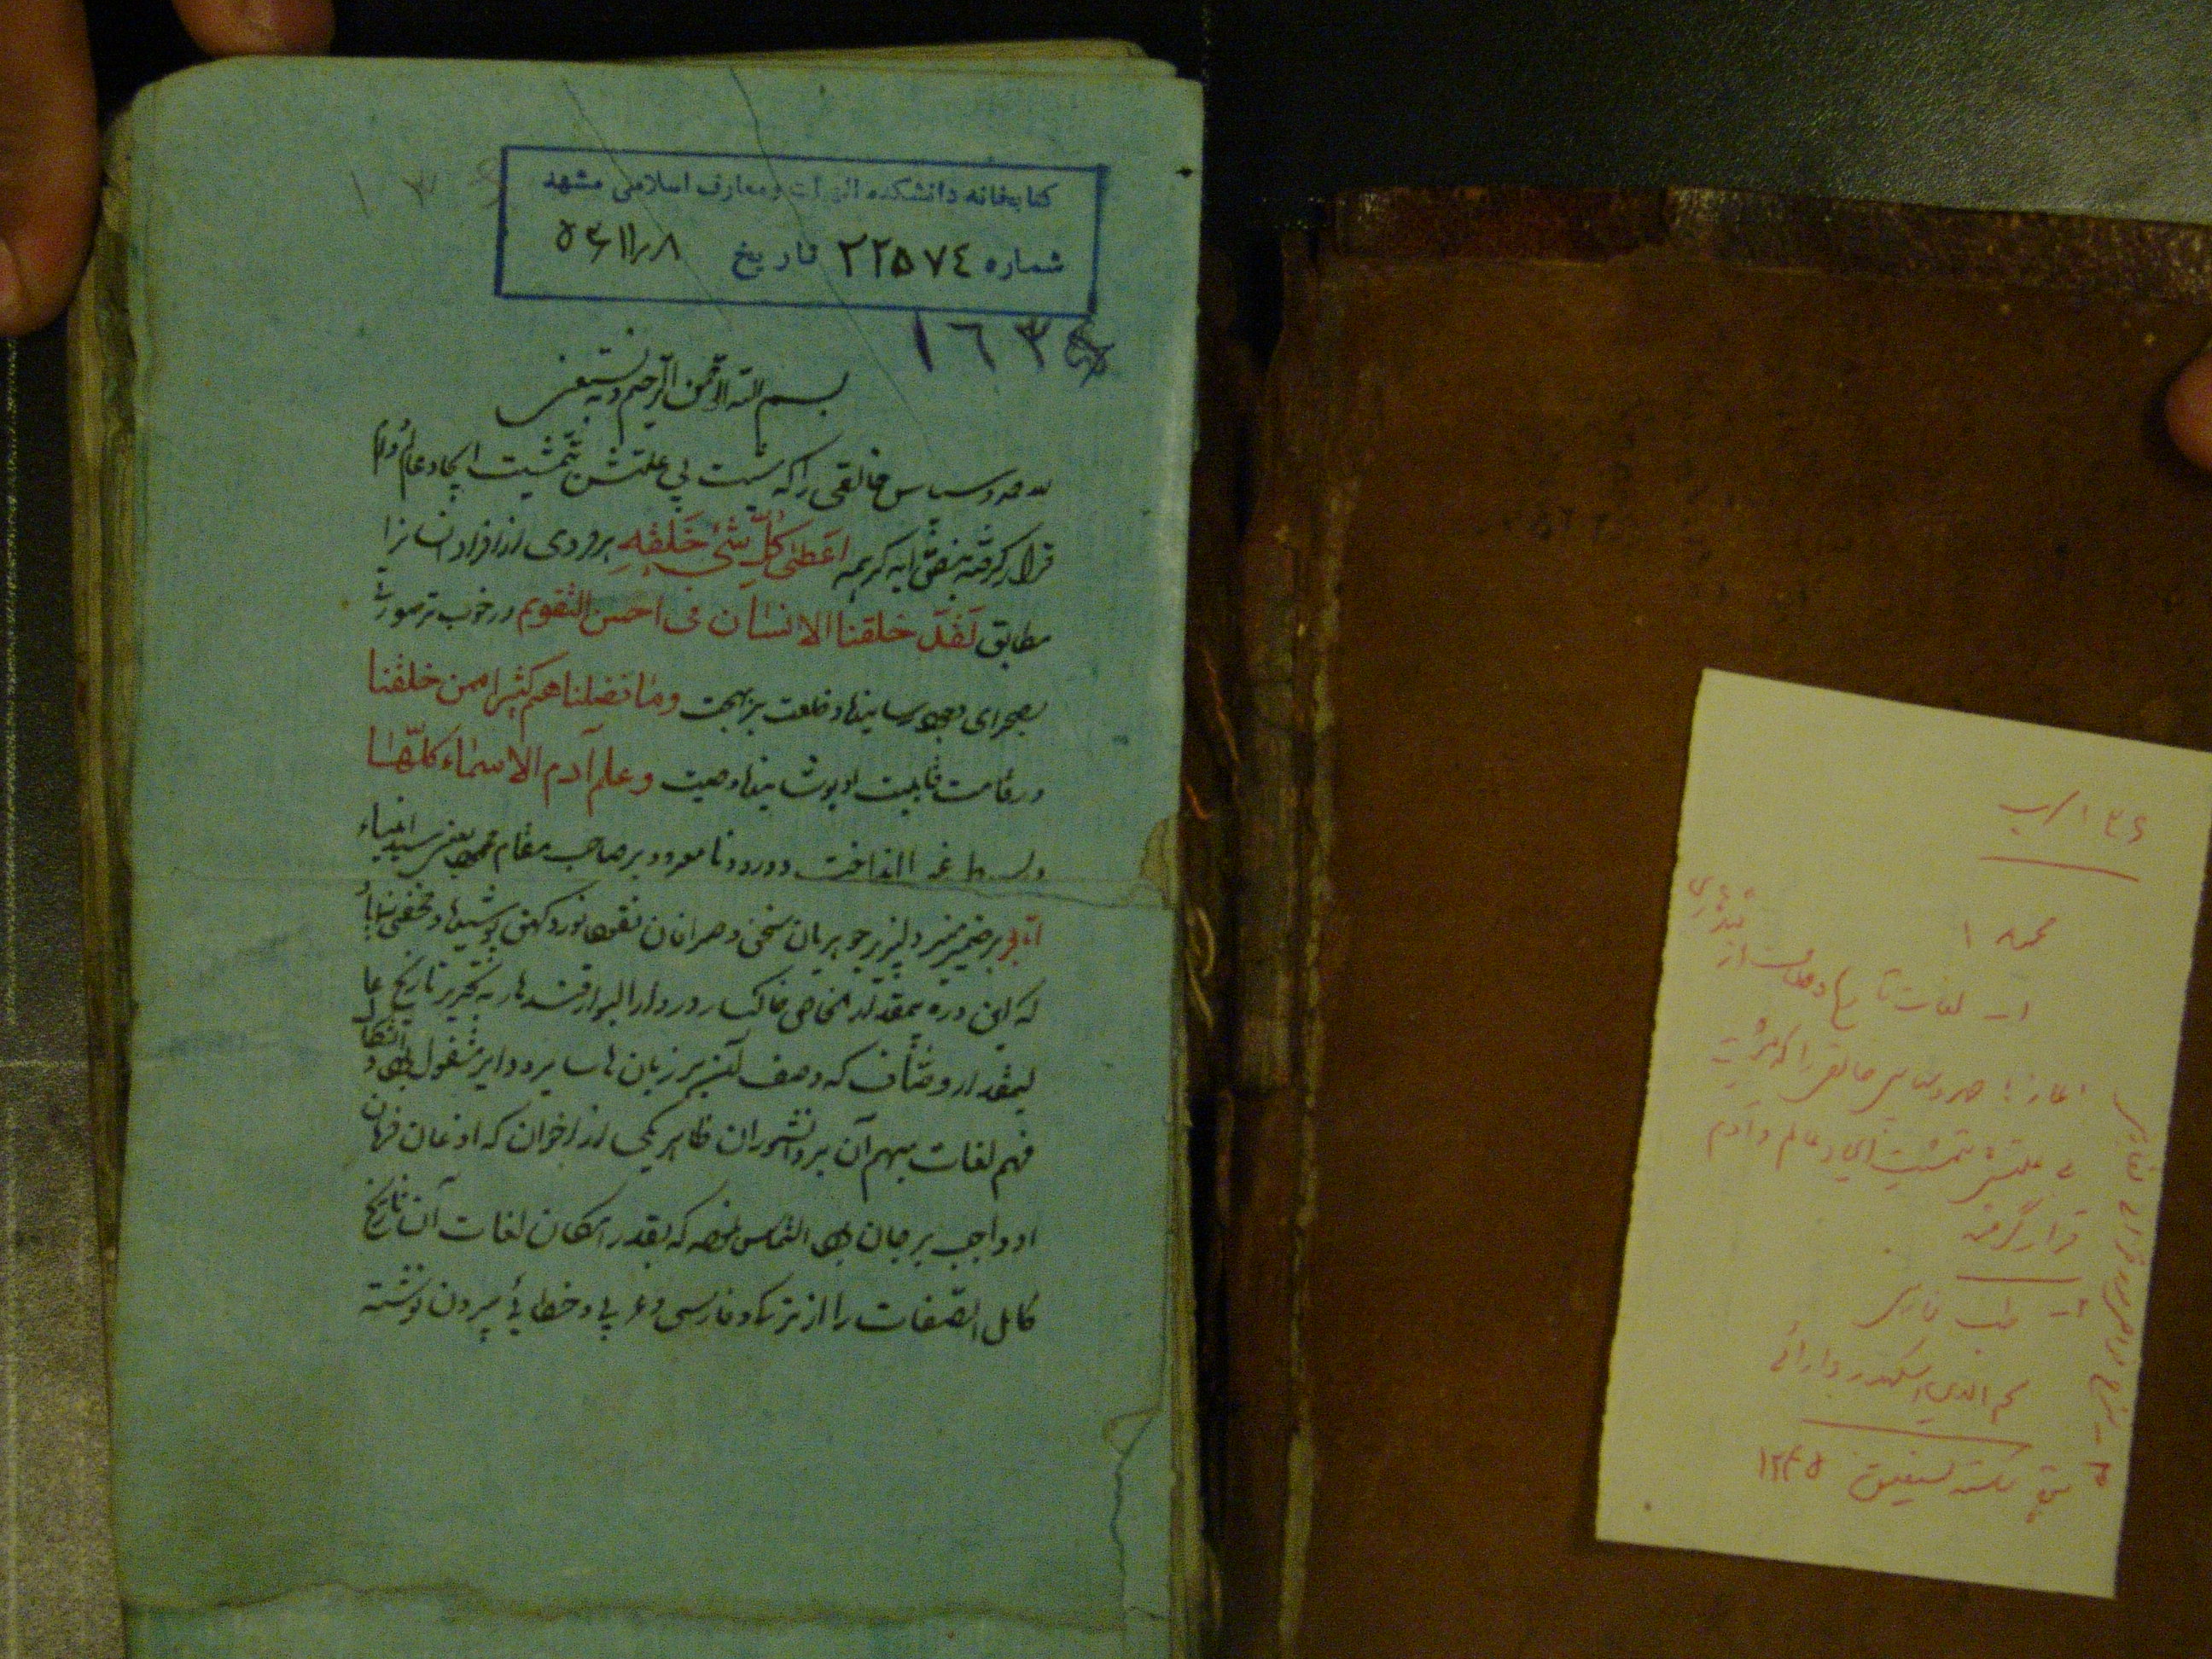 کتابخانه دانشکده الهیات و معارف اسلامی مشهد
شماره ۲۲۵۷٤ تاریخ ۵۳/۱۱/۰۸
۱٦۳
بسم الله الرحمن الرحیم و به نستعین
حمد و سپاس خالقی را که مشیت بی علتش بتمشیت ایجاد عالم و آدم
قرار گرفته بمقتضای آیه کریمه اعطی کل شیء خلقه هر فردی از افراد انسان را
مطابق لقد خلقنا الانسان فی احسن التقویم در خوب تر صورتی
بصحرای وجود رسانید و خلعت پر بهجت و ما فضلناهم کثیرا ممن خلقنا
در قامت قابلیت او پوشانید و صیت و علم آدم الاسماء کلها
در انداخت و درود نامعدود بر صاحب مقام محمود یعنی سید انبیاء
بر ضمیر منیر جوهریان سخن و صرافان نقود کهن پوشیده و مخفی نماند
که این ذره بیمقدار خاکسار در دار القرار قندهار به تحریر تاریخ
وصاف که وصف آن بر زبان ها سایر و دایر مشغول بود و
فهم لغات مبهم آن بر دانشوران ظاهر یکی از اخوان که اذعان فرمان
او واجب بر جان بود التماس نمود که بقدر امکان لغات آن تاریخ
کامل الصفات را از ترکی و فارسی و عربی و خطایی بیرون نوشته
۱۳۶ / ب
۱
۱ـ لغات تاریخ وصاف از قندهاری
آغاز: حمد و سپاس خالقی را که مشیت
بی علتش بتمشیت ایجاد عالم و آدم
قرار گرفته
۲ـ طب فارسی
نجم الدین اسکندر
شکسته نستعلیق ۱۲۴۵